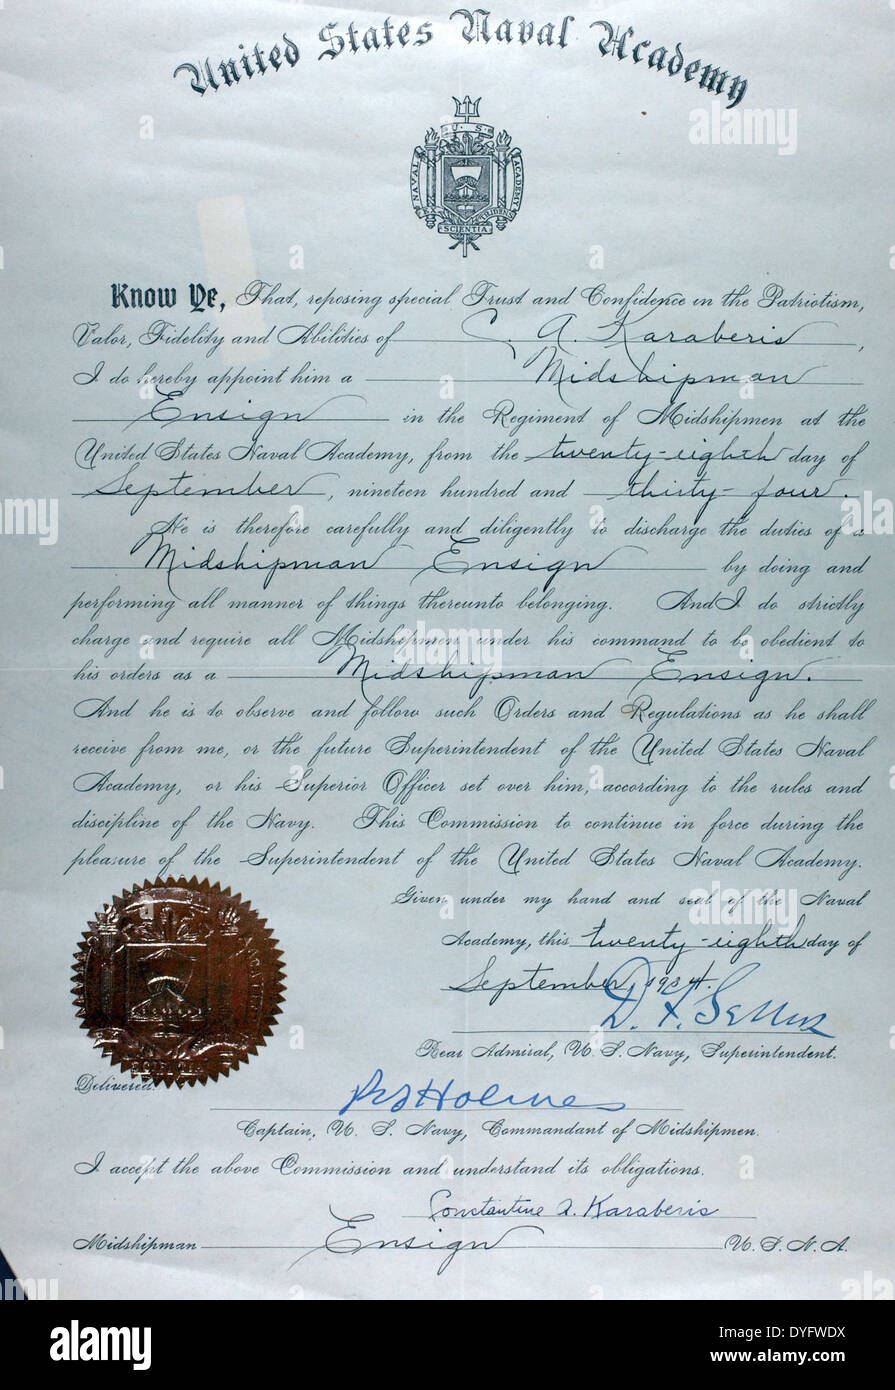 United States Naval Academy
U. S.
NAVAL ACADEMY
EX SCIENTIA TRIDENS
Know Ye, That, reposing special Trust and Confidence in the Patriotism,
Valor, Fidelity and Abilities of C. A. Karaberis,
I do hereby appoint him a Midshipman
Ensign in the Regiment of Midshipmen at the
United States Naval Academy, from the twenty-eighth day of
September, nineteen hundred and thirty-four.
He is therefore carefully and diligently to discharge the duties of a
Midshipman Ensign by doing and
performing all manner of things thereunto belonging. And I do strictly
charge and require all Midshipmen under his command to be obedient to
his orders as a Midshipman Ensign.
And he is to observe and follow such Orders and Regulations as he shall
receive from me, or the future Superintendent of the United States Naval
Academy, or his Superior Officer set over him, according to the rules and
discipline of the Navy. This Commission to continue in force during the
pleasure of the Superintendent of the United States Naval Academy.
Given under my hand and seal of the Naval
Academy, this twenty-eighth day of
September, 1934.
D. F. Sellers
Rear Admiral, U. S. Navy, Superintendent.
Delivered:
Holmes
Captain, U. S. Navy, Commandant of Midshipmen.
I accept the above Commission and understand its obligations.
Constantine A. Karaberis
Midshipman Ensign U. S. N. A.
alamy
Image ID: DYFWDX
www.alamy.com